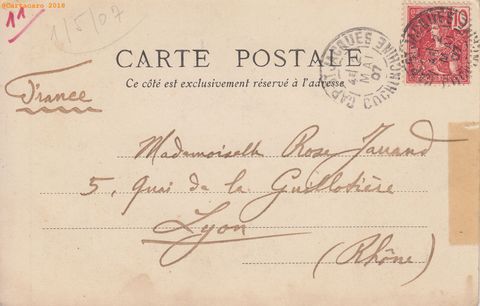 @Cartacaro 2016
11
1/5/07
CARTE POSTALE
Ce côté est exclusivement réservé à l'adresse
CAP ST JACQUES COCHINCHINE
1 MAI 07
10
France
Mademoiselle Rose
5, Quai de la Guillotière
Lyon
(Rhône)